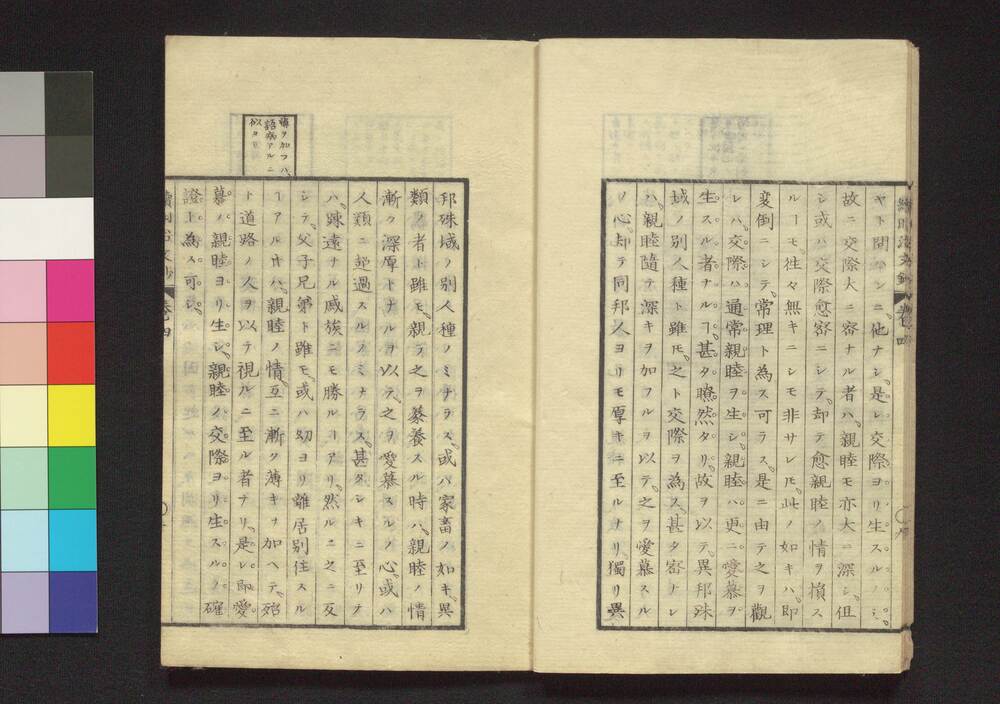 ヤト問ハンニ。他ナシ。是レ交際ヨリ生スルノミ。
故ニ交際大ニ密ナル者ハ。親睦モ亦大ニ深シ。但
シ或ハ交際愈密ニシテ。却テ愈親睦ノ情ヲ損ス
ルヿモ。往々無キニシモ非サレ𪜈。此ノ如キハ。即
変倒ニシテ。常理ト為ス可ラス。是ニ由テ之ヲ觀
レハ。交際ハ通常親睦ヲ生シ。親睦ハ更ニ愛慕ヲ
生スル者ナルヿ。甚タ瞭然タリ。故ヲ以テ。異邦殊
域ノ別人種ト雖𪜈。之ト交際ヲ為ス。甚タ密ナレ
ハ。親睦隨テ深キヲ加フルヲ以テ。之ヲ愛慕スル
ノ心。却テ同邦人ヨリモ厚キニ至ルナリ。獨リ異
薄ヲ加フハ
語病アルニ
似タリ
邦殊域ノ別人種ノミナラス。或ハ家畜ノ如キ。異
類ノ者ト雖モ。親ラ之ヲ豢養スル時ハ。親睦ノ情
漸ク深厚トナルヲ以テ。之ヲ愛慕スルノ心。或ハ
人類ニ超過スルノミナラス。甚タシキニ至リテ
ハ。踈遠ナル戚族ニモ勝ルヿアリ。然ルニ之ニ反
シテ。父子兄弟ト雖モ。或ハ幼ヨリ離居別住スル
ヿアル𪜈ハ。親睦ノ情。互ニ漸ク薄キヲ加ヘテ。殆
ト道路ノ人ヲ以テ視ルニ至ル者アリ。是レ即愛
慕ハ親睦ヨリ生シ。親睦ハ交際ヨリ生スルノ確
證ト為ス可シ。